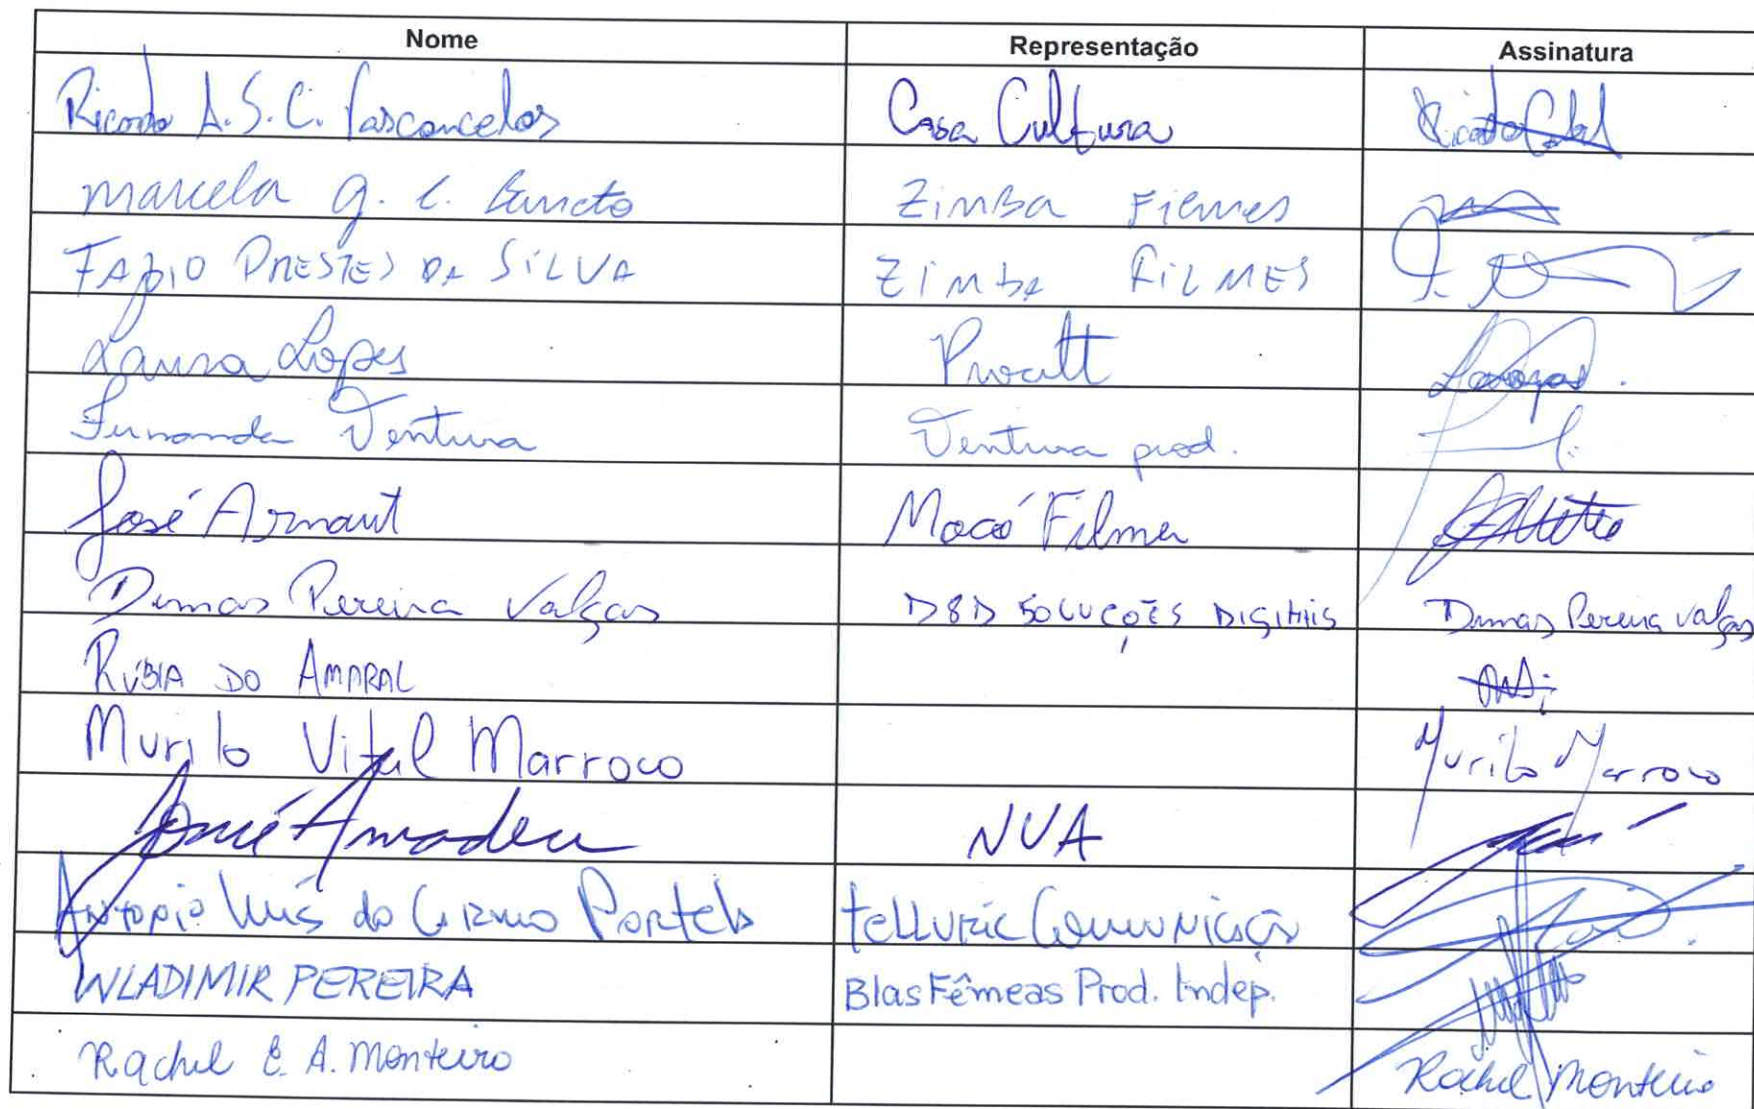 Nome Representação Assinatura
Ricardo A. S. C. Vasconcelos Casa Cultura Ricardo
Marcela g. c. Zimba Filmes
FABIO PRESTES DA SILVA ZIMBA FILMES
Laura Lopes Procult
Fernanda Ventura Ventura prod.
José Arnaut Mocó Filmes
Dimas Pereira Valgas D8D SOLUÇÕES DIGITAIS Dimas Pereira Valgas
RÚBIA DO AMARAL
Murilo Vital Marroco Murilo Marroco
José Amadeu NVA
Antonio Luís do Carmo Portela tellvric Comunicação
WLADIMIR PEREIRA BlasFêmeas Prod. Indep.
Rachel E. A. Monteiro Rachel Monteiro